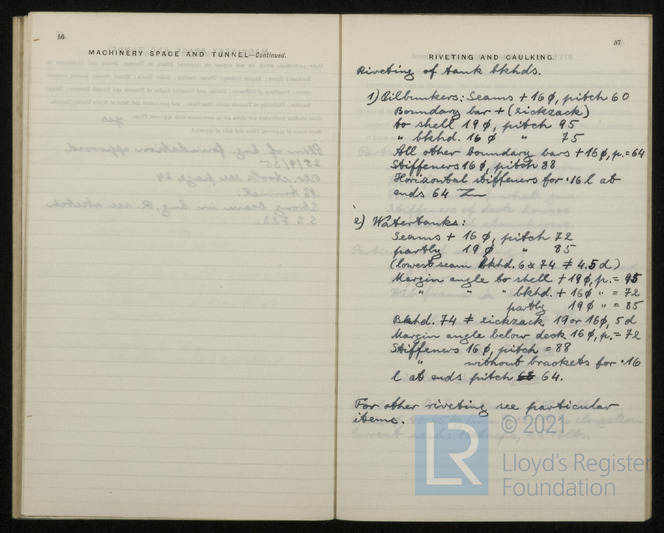 56
MACHINERY SPACE AND TUNNEL—Continued.
57
RIVETING AND CAULKING.
Riveting of tank bkhds.
1) Oilbunkers: Seams ‡ 16 ø, pitch 60
Boundary bar ‡ (zickzack)
to shell 19 ø, pitch 95
" bkhd. 16 ø " 75
All other boundary bars ‡ 16 ø, p. = 64
Stiffeners 16 ø, pitch 88
Horizontal stiffeners for ·16 l at
ends 64
2) Watertanks:
Seams ‡ 16 ø, pitch 72
partly 19 ø " 85
(lowest seam bkhd. 6 & 74 ≠ 4.5 d)
Margin angle to shell ‡ 19 ø, p. = 95
" " " bkhd. ‡ 16 ø " = 72
partly 19 ø " = 85
Bkhd. 74 ≠ zickzack 19 or 16 ø, 5 d
Margin angle below deck 16 ø, p. = 72
Stiffeners 16 ø, pitch = 88
" without brackets for ·16
l at ends pitch 64.
For other riveting see particular
items.
© 2021
LR
Lloyd's Register
Foundation